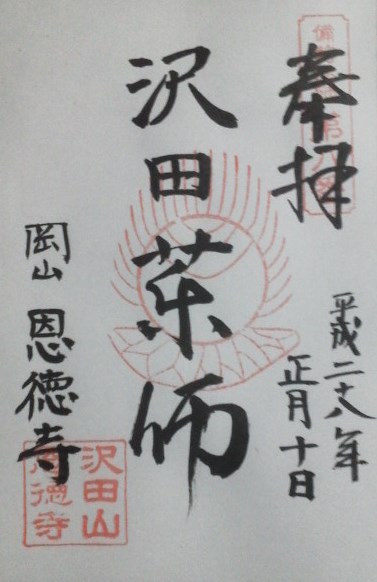 奉拝
平成二十八年
正月十日
沢田薬师
岡山 恩徳寺
沢田山
恩徳寺